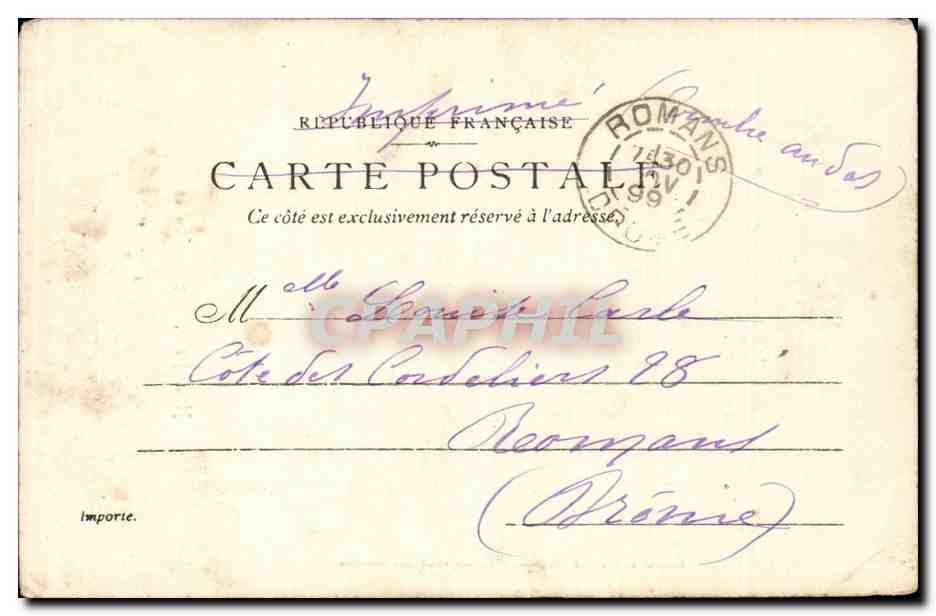 Imprimé (Timbre au dos)
RÉPUBLIQUE FRANÇAISE
CARTE POSTALE
Ce côté est exclusivement réservé à l'adresse.
ROMANS
7 30
99
DROME
Melle Louise Carle
CPAPHIL
Côte des Cordeliers 28
Romans
(Drôme)
Importe.